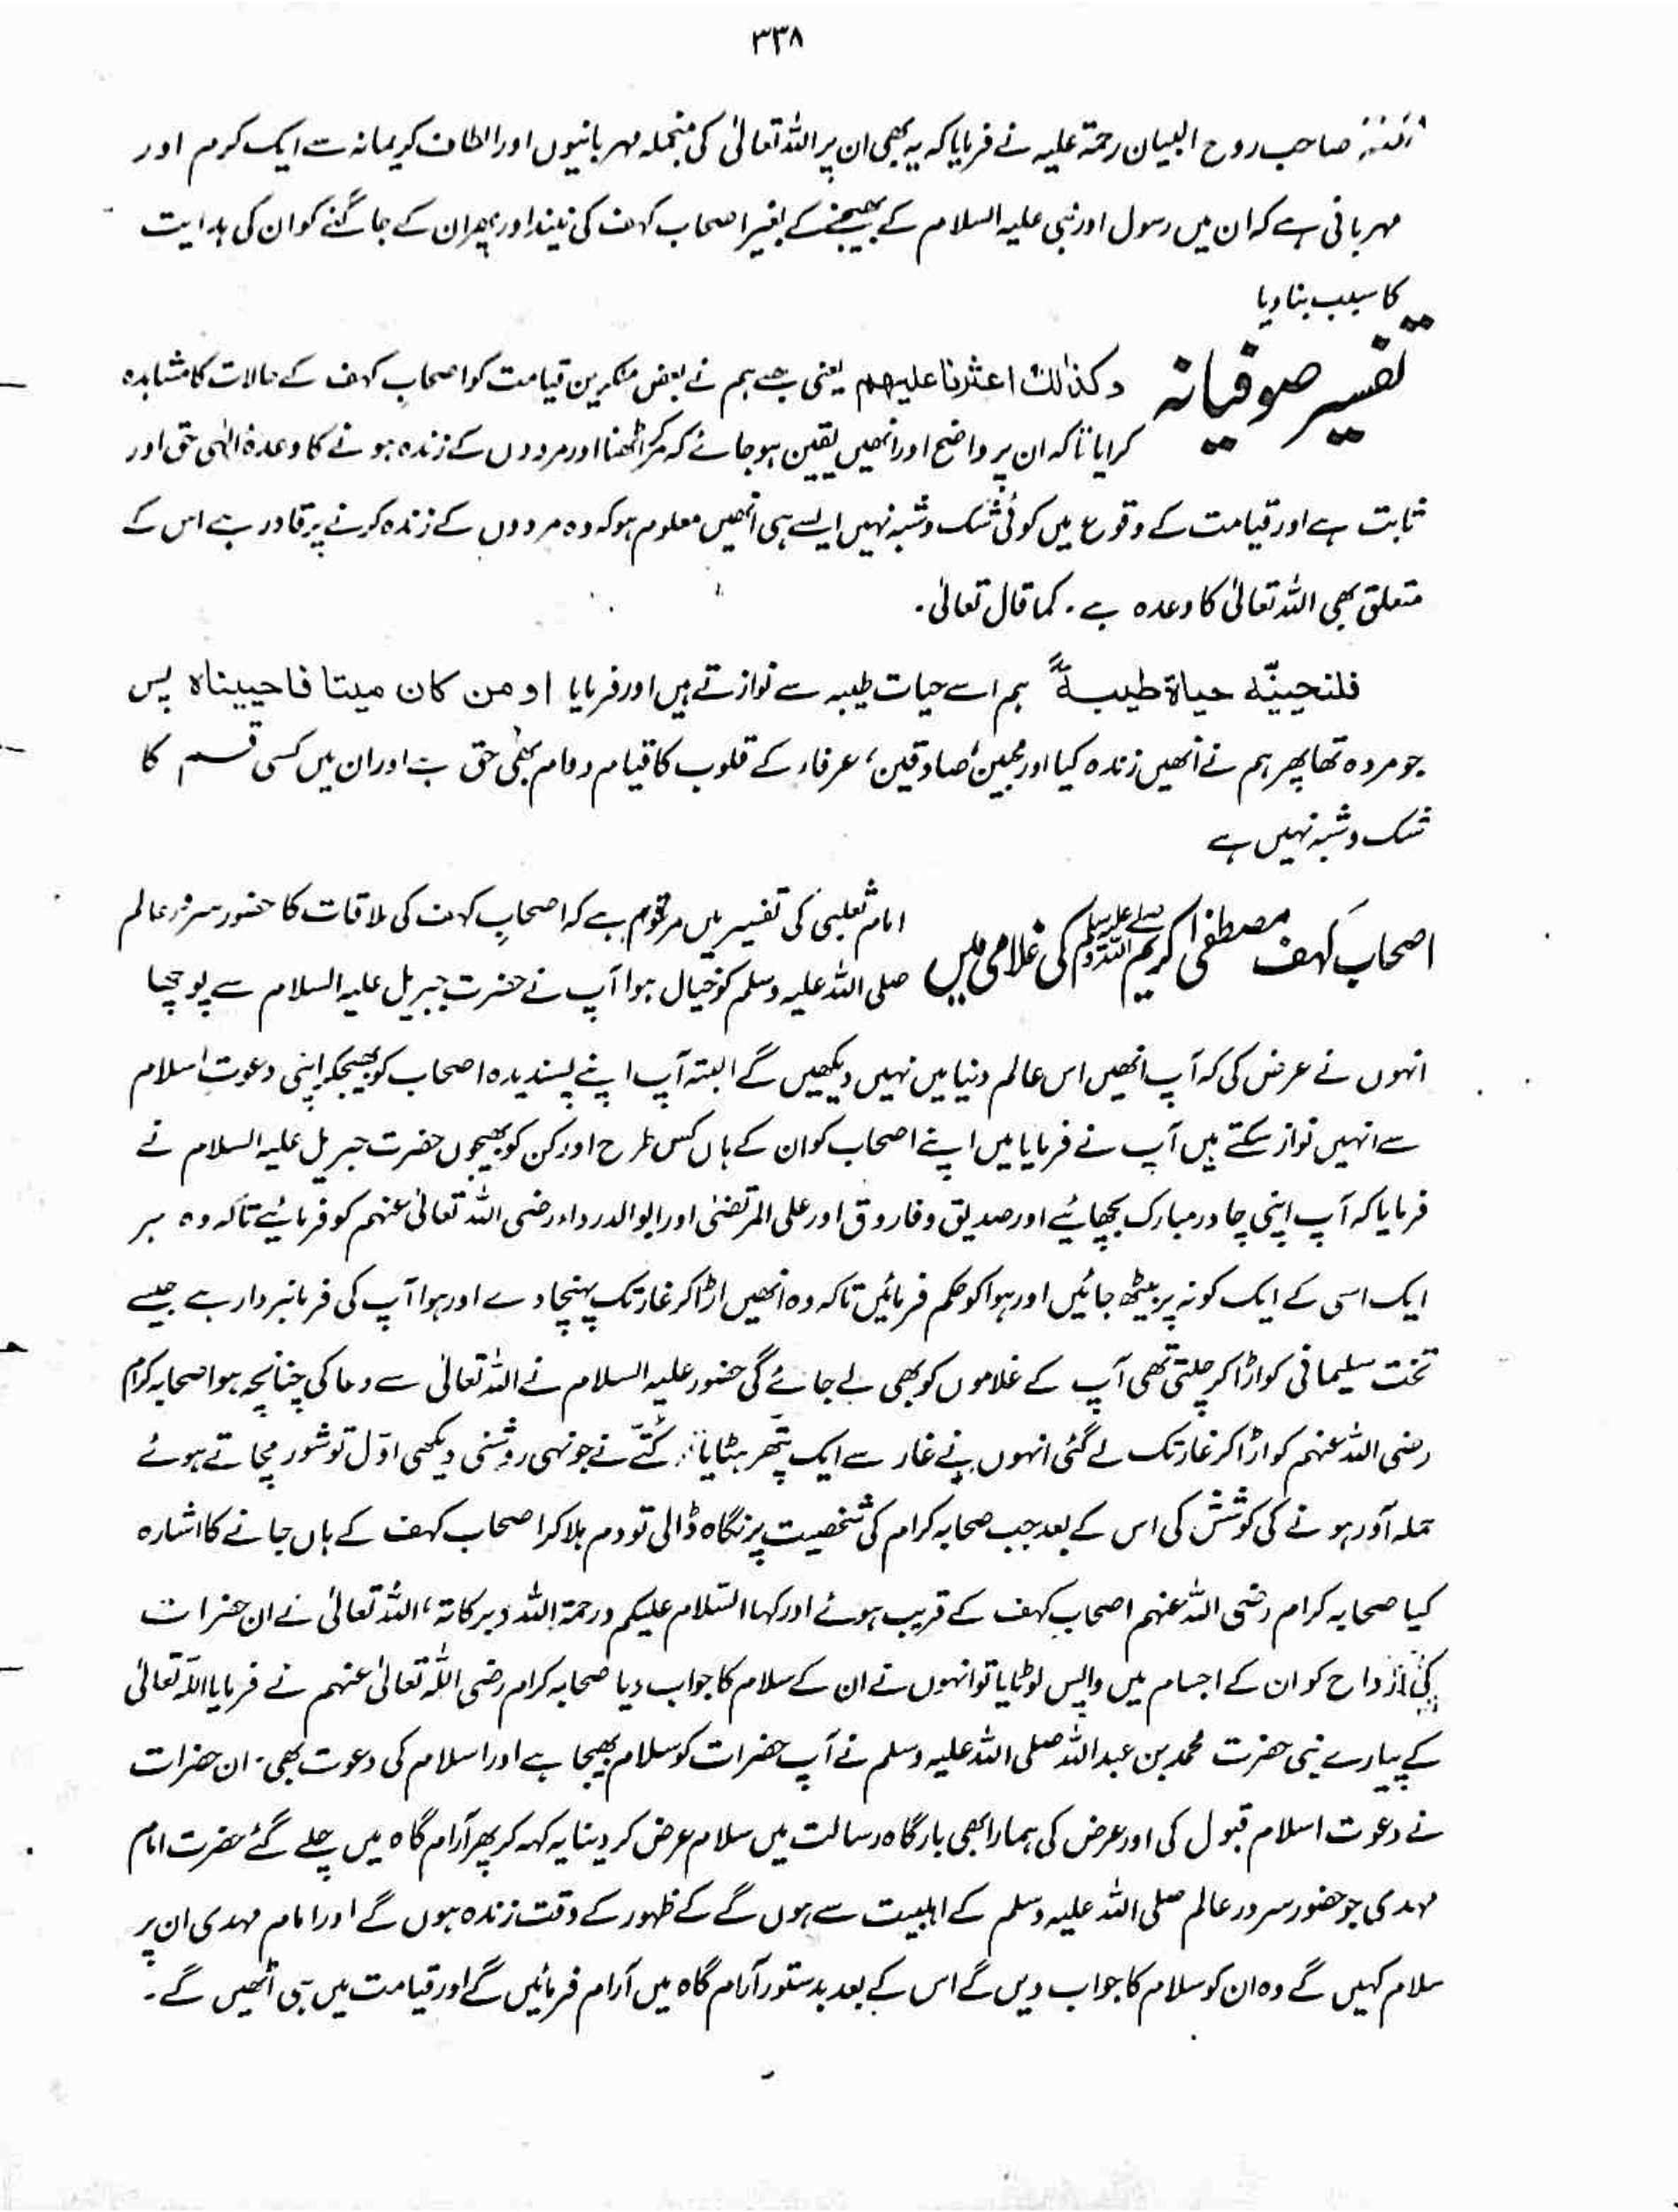 ۳۳۸
صاحب روح البیان رحمۃ علیہ نے فرمایا کہ یہ بھی ان پر اللہ تعالیٰ کی منجملہ مہربانیوں اور الطاف کریمانہ سے ایک کرم اور
مہربانی ہے کہ ان میں رسول اور نبی علیہ السلام کے بھیجنے کے بغیر اصحاب کہف کی نیند اور پھر ان کے جاگنے کو ان کی ہدایت
کا سبب بنا دیا
تفسیر صوفیانہ وکذالک اعثرنا علیہم یعنی جیسے ہم نے بعض منکرین قیامت کو اصحاب کہف کے حالات کا مشاہدہ
کرایا تاکہ ان پر واضح اور انھیں یقین ہو جائے کہ مرکر اٹھنا اور مردوں کے زندہ ہونے کا وعدۂ الٰہی حق اور
ثابت ہے اور قیامت کے وقوع میں کوئی شک و شبہ نہیں ایسے ہی انھیں معلوم ہو کہ وہ مردوں کے زندہ کرنے پر قادر ہے اس کے
متعلق بھی اللہ تعالیٰ کا وعدہ ہے۔ کما قال تعالیٰ۔
فلنحیینّہ حیاۃ طیبۃً ہم اسے حیات طیبہ سے نوازتے ہیں اور فرمایا او من کان میتا فاحییناہ پس
جو مردہ تھا پھر ہم نے انھیں زندہ کیا اور محبین، صادقین، عرفاء کے قلوب کا قیام دوام بھی حق ہے اور ان میں کسی قسم کا
شک و شبہ نہیں ہے
اصحاب کہف مصطفیٰ کریم صلی اللہ علیہ وسلم کی غلامی میں امام ثعلبی کی تفسیر میں مرقوم ہے کہ اصحاب کہف کی ملاقات کا حضور سرور عالم
صلی اللہ علیہ وسلم کو خیال ہوا آپ نے حضرت جبریل علیہ السلام سے پوچھا
انہوں نے عرض کی کہ آپ انھیں اس عالم دنیا میں نہیں دیکھیں گے البتہ آپ اپنے پسندیدہ اصحاب کو بھیجکر اپنی دعوت اسلام
سے انہیں نواز سکتے ہیں آپ نے فرمایا میں اپنے اصحاب کو ان کے ہاں کس طرح اور کن کو بھیجوں حضرت جبریل علیہ السلام نے
فرمایا کہ آپ اپنی چادر مبارک بچھائیے اور صدیق و فاروق اور علی المرتضیٰ اور ابوالدرداء رضی اللہ تعالیٰ عنہم کو فرمائیے تاکہ وہ ہر
ایک اسی کے ایک کونہ پر بیٹھ جائیں اور ہوا کو حکم فرمائیں تاکہ وہ انھیں اڑا کر غار تک پہنچا دے اور ہوا آپ کی فرمانبردار ہے جیسے
تخت سلیمانی کو اڑا کر چلتی تھی آپ کے غلاموں کو بھی لے جائے گی حضور علیہ السلام نے اللہ تعالیٰ سے دعا کی چنانچہ ہوا صحابہ کرام
رضی اللہ عنہم کو اڑا کر غار تک لے گئی انہوں نے غار سے ایک پتھر ہٹایا کتّے نے جونہی روشنی دیکھی اوّل تو شور مچاتے ہوئے
حملہ آور ہونے کی کوشش کی اس کے بعد جب صحابہ کرام کی شخصیت پر نگاہ ڈالی تو دم ہلا کر اصحاب کہف کے ہاں جانے کا اشارہ
کیا صحابہ کرام رضی اللہ عنہم اصحاب کہف کے قریب ہوئے اور کہا السّلام علیکم ورحمۃ اللہ وبرکاتہ، اللہ تعالیٰ نے ان حضرات
کی ارواح کو ان کے اجسام میں واپس لوٹایا تو انہوں نے ان کے سلام کا جواب دیا صحابہ کرام رضی اللہ تعالیٰ عنہم نے فرمایا اللہ تعالیٰ
کے پیارے نبی حضرت محمد بن عبداللہ صلی اللہ علیہ وسلم نے آپ حضرات کو سلام بھیجا ہے اور اسلام کی دعوت بھی۔ ان حضرات
نے دعوت اسلام قبول کی اور عرض کی ہمارا بھی بارگاہ رسالت میں سلام عرض کر دینا یہ کہہ کر پھر آرام گاہ میں چلے گئے حضرت امام
مہدی جو حضور سرور عالم صلی اللہ علیہ وسلم کے اہلبیت سے ہوں گے کے ظہور کے وقت زندہ ہوں گے اور امام مہدی ان پر
سلام کہیں گے وہ ان کو سلام کا جواب دیں گے اس کے بعد بدستور آرام گاہ میں آرام فرمائیں گے اور قیامت میں ہی اٹھیں گے۔